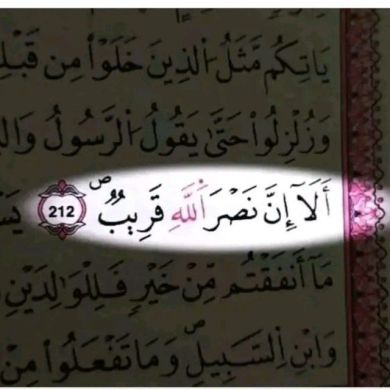 يَاتِكُم مَّثَلُ اُ۬لذِينَ خَلَوْاْ مِن قَبْلِ
وَزُلْزِلُواْ حَتَّىٰ يَقُولُ اُ۬لرَّسُولُ
أَلَآ إِنَّ نَصْرَ اَ۬للَّهِ قَرِيبٞۖ 212
مَآ أَنفَقْتُم مِّنْ خَيْرٖ فَلِلْوَٰلِدَيْنِ
وَابْنِ اِ۬لسَّبِيلِۖ وَمَا تَفْعَلُواْ مِنْ